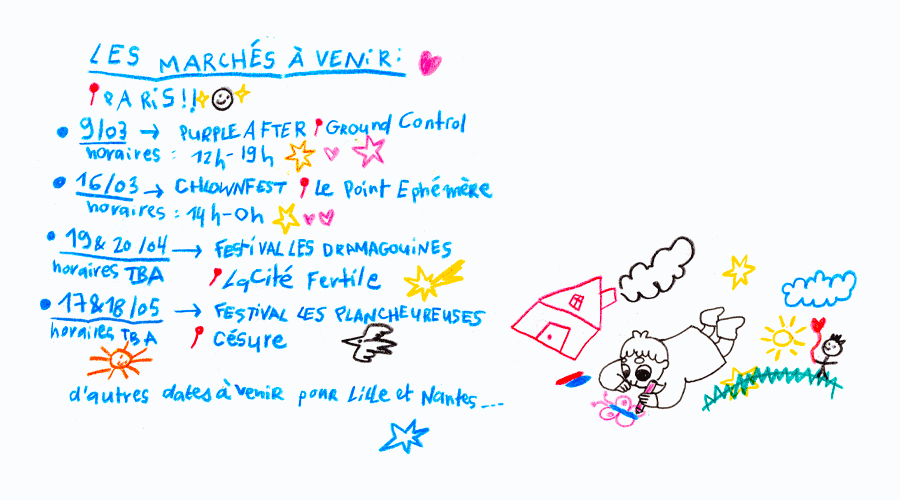 LES MARCHÉS À VENIR:
PARIS!!
• 9/03 → PURPLE AFTER GROUND Control
horaires : 12h-19h
• 16/03 → CHLOWNFEST Le Point Ephémère
horaires : 14h-0h
• 19 & 20 /04 → FESTIVAL LES DRAMAGOUINES
horaires TBA La Cité Fertile
• 17&18/05 → FESTIVAL LES PLANCHEUREUSES
horaires TBA Césure
d'autres dates à venir pour Lille et Nantes...